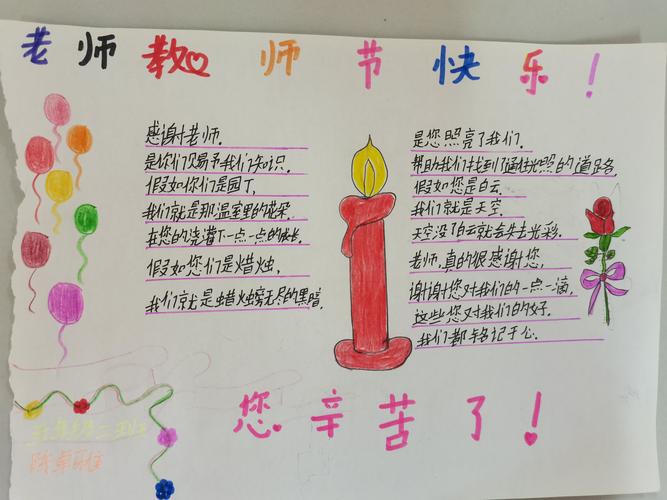 老师教师节快乐！
感谢老师，
是你们赐予我们知识。
假如你们是园丁，
我们就是那温室里的花朵，
在您的浇灌下一点一点的成长，
假如您们是蜡烛，
我们就是蜡烛旁无尽的黑暗，
是您照亮了我们，
帮助我们找到了通往光照的道路，
假如您是白云，
我们就是天空，
天空没了白云就会失去光彩，
老师，真的很感谢您，
谢谢您对我们的一点一滴，
这些您对我们的好，
我们都铭记于心。
您辛苦了！